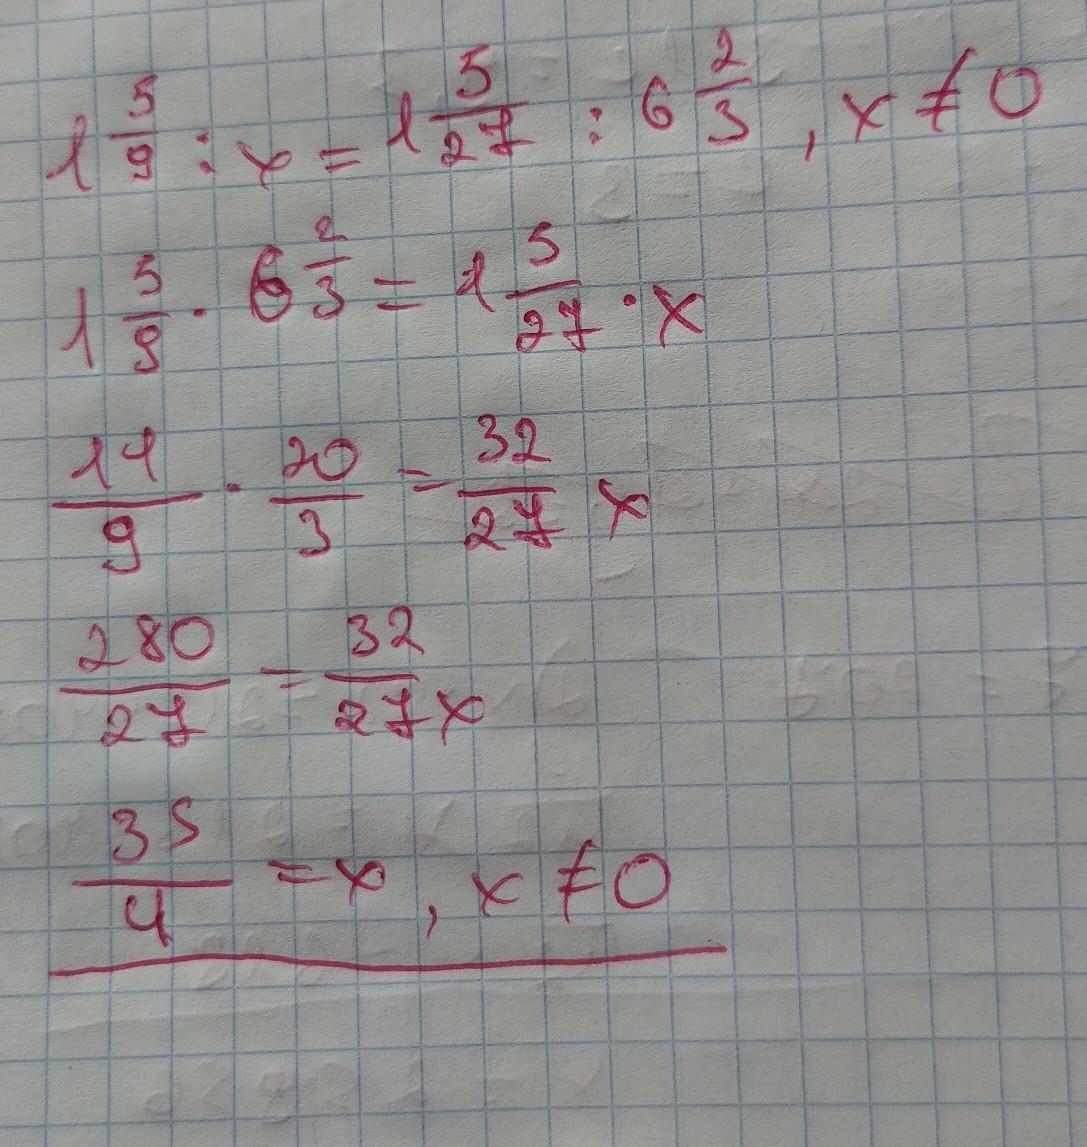 1 5/9 : x = 1 5/27 : 6 2/3 , x ≠ 0
1 5/9 · 6 2/3 = 1 5/27 · x
14/9 · 20/3 = 32/27 x
280/27 = 32/27 x
35/4 = x , x ≠ 0